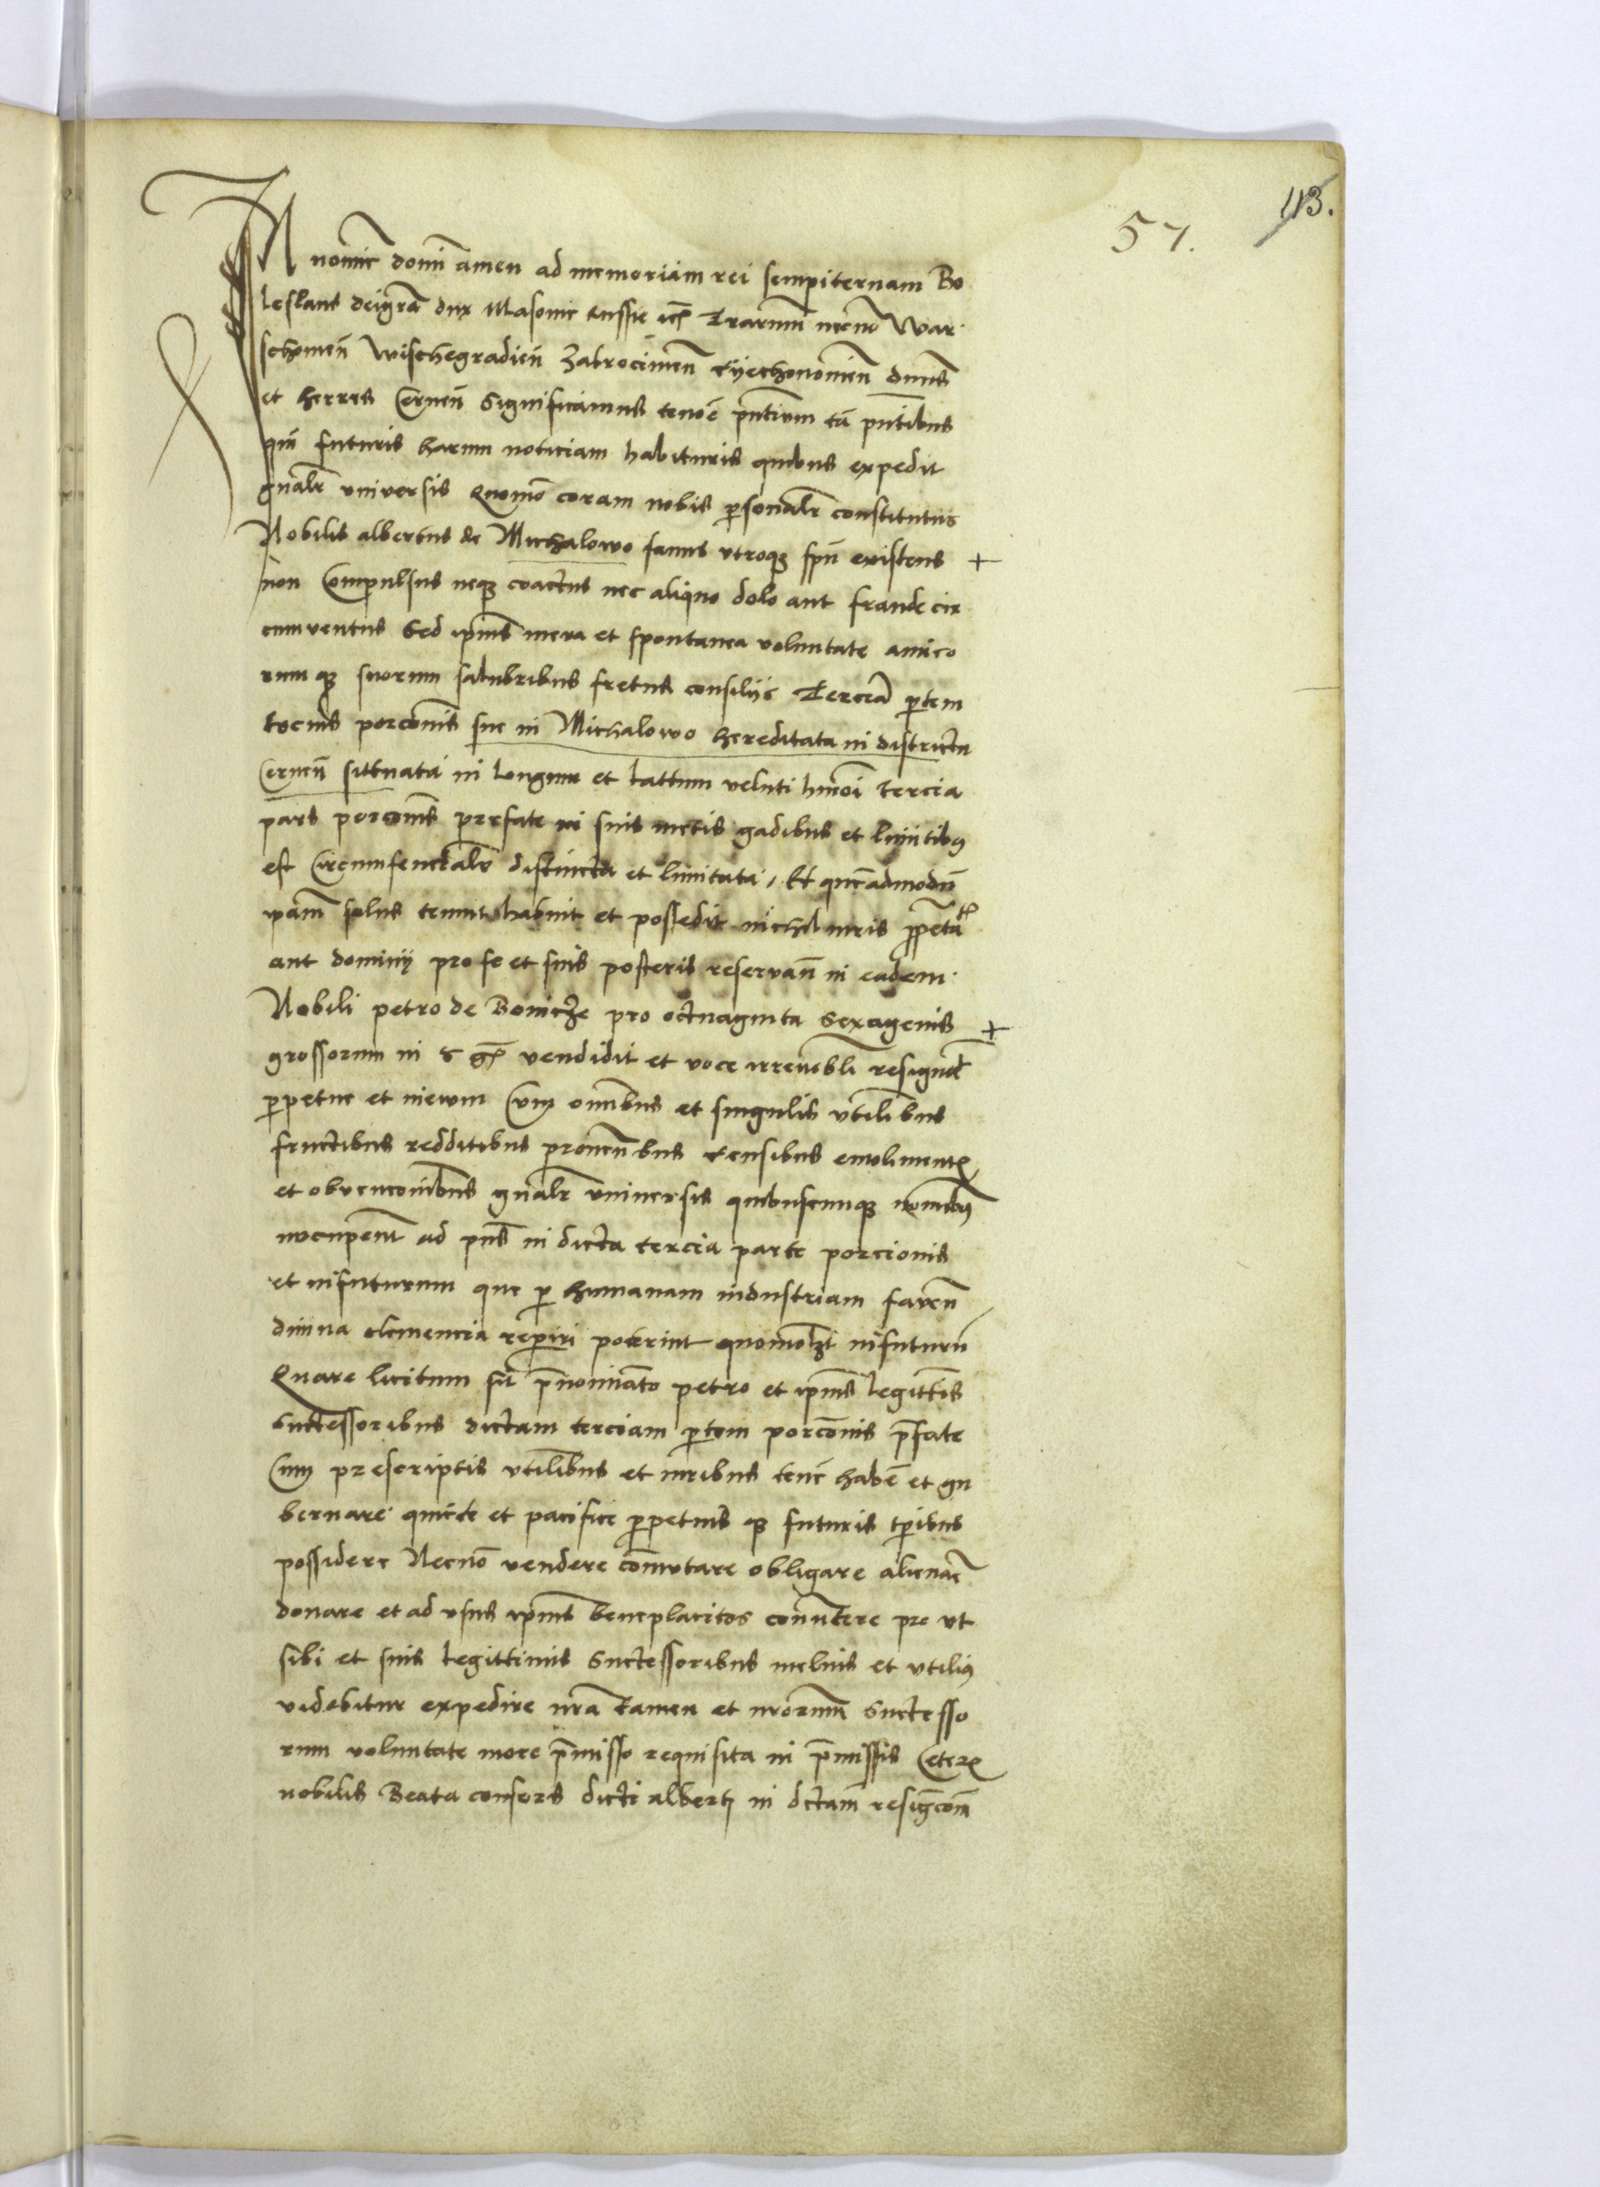 113.
57.
In nomine domi amen ad memoriam rei sempiternam Bo
leslaus deigra dux Masouie Russie etc Trarum necno War
schouien Wischegradien Zakrocimen Cyechonomien dnus
et heres Cernen Significamus tenore pntium tam pntibus
quam futuris harum noticiam habituris quibus expedit
gnalr vniversis Quomo coram nobis personalr constitutus
Nobilis albertus de Michalowo sanus vtroque existens +
non Compulsus neque coactus nec aliquo dolo aut fraude cir
cumventus Sed ipius mera et spontanea voluntate amico
rumque suorum salubribus fretus consilijs Terciam partem
tocius porconis sue in Michalowo hereditata in districtu
Cernen situata in longum et lattum veluti hmoi tercia
pars porconis prefate in suis metis gadibus et limitibus
est Circumferencialr distincta et limitata / Et quemadmodum
solus tenuit habuit et possedit nichil iuris
aut dominij pro se et suis posteris reservan in eadem
Nobili petro de Bonicze pro octuaginta Sexagenis +
grossorum in vendidit et voce resignavit
perpetue et inewum Cum omnibus et singulis vtilibus
fructibus redditibus prouentibus Censibus emolimentis
et obvencionibus gnalr vniuersis quibuscumque nominibus
nuncupentur ad pns in dicta tercia parte porcionis
et infuturum que per humanam industriam faven
diuina clemencia reperiri poterint quomolzt infuturum
Quare licitum sit prenominato petro et ipius legittimis
Successoribus dictam terciam partem porconis prefate
Cum prescriptis vtilibus et iuribus tenere habere et gu
bernare quiete et pacifice perpetuisque futuris tpribus
possidere Necno vendere comutare obligare alienare
donare et ad vsus ipius beneplacitos convertere pro vt
sibi et suis legittimis Successoribus melius et vtilius
videbitur expedire nra tamen et nrorum Successo
rum voluntate more premisso requisita in premissis Ceterum
nobilis Beata consors dicti alberti in dictam resignacionem